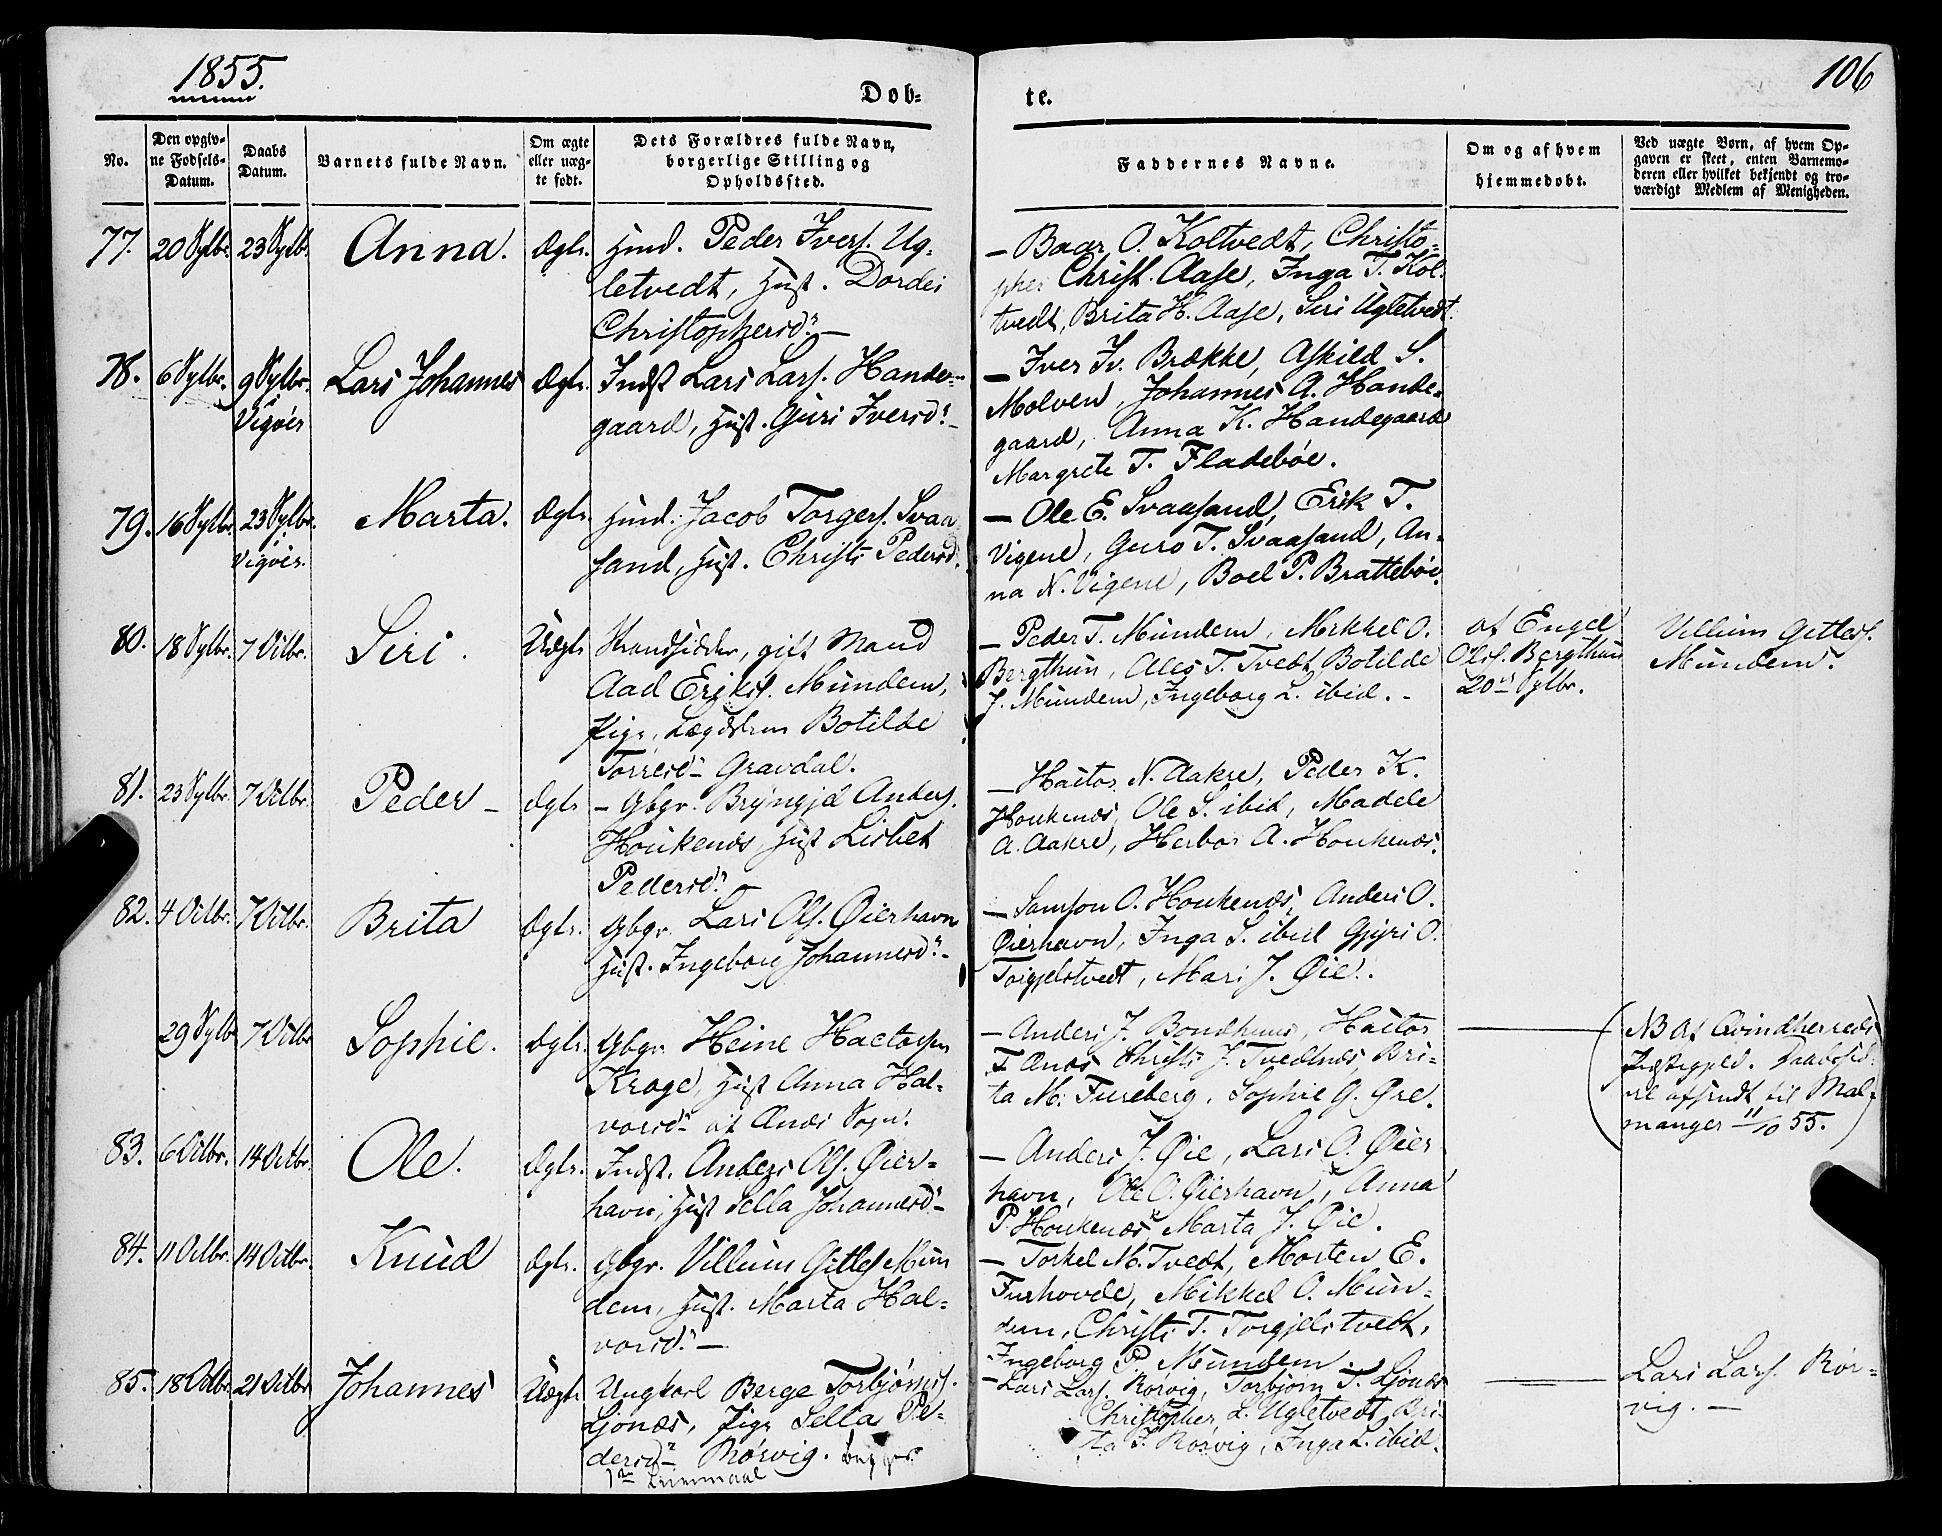 1855.
106
Dob-
te.
No.
Den opgiv-
ne Fødsels-
Datum.
Daabs
Datum.
Barnets fulde Navn.
Om ægte
eller uæg-
te født.
Dets Forældres fulde Navn,
borgerlige Stilling og
Opholdssted.
Faddernes Navne.
Om og af hvem
hjemmedøbt.
Ved uægte Børn, af hvem Op-
gaven er skeet, enten Barnemo-
deren eller hvilket bekjendt og tro-
værdigt Medlem af Menigheden.
77. 20 Sptbr. 23 Sptb. Anna. Ægte. Hmd. Peder Ivers. Ug-
letvedt, Hust. Dordei
Christophersd. —
— Baar O. Koltvedt, Christo-
pher Christ. Aase, Inga T. Kol-
tvedt, Brita H. Aase, Siri Ugletvedt.
78. 6 Sptbr. 9 Sptbr. Lars Johannes Ægte. Indst Lars Lars. Hande-
Vigøer
gaard, Hust. Guri Iversd. —
— Iver Iv. Brække, Askild S.
Molven, Johannes A. Hande-
gaard, Anna K. Handegaard
Margrete T. Fladebøe.
79. 16 Sptbr. 23 Sptbr. Marta. Ægte. Hmd. Jacob Torgers. Svaa
Vigøer.
sand, Hust. Christi Pedersd.
— Ole E. Svaasand, Erik T.
Vigene, Guro T. Svaasand, An-
na N. Vigene, Boel P. Brattebøe.
80. 18 Sptbr. 7 Octbr. Siri. Uægte Strandsidder, gift Mand
Aad Eriks. Mundem,
Pige, Lægdslem Botilde
Torresd. Gravdal.
— Peder T. Mundem, Mikkel O.
Bergthun, Ales T. Tvedt, Botilde
J. Mundem, Ingeborg L. ibid. -
af Engel
Olsd. Bergthun
20de Sptbr.
Villum Gitles.
Mundem.
81. 23 Sptbr. 7 Octbr. Peder — Ægte — Gbgr. Bryngjel Anders.
Houkenæs Hust Lisbet
Pedersd. —
— Hactor N. Aakre, Peder K.
Houkenæs, Ole S. ibid, Madele
A. Aakre, Herbor A. Houkenæs.
82. 4 Octbr. 7 Octbr. Brita Ægte. Gbgr. Lars Ols. Øierhavn
Hust. Ingeborg Johannesd. —
— Samson O. Houkenæs, Anders O.
Øierhavn, Inga S. ibid Gjyri O.
Torgjelstvedt, Mari J. Øie.
29 Sptbr 7 Octbr Sophie. Ægte. Gbgr. Heine Hactorsen
Kroge, Hust Anna Hal-
vorsd. af Ænæs Sogn.
— Anders J. Bondhuus, Hactor
T. Ænæs Christi J. Tvedtnæs, Bri-
ta M. Fureberg, Sophie G. Gre.
NB Af Qvindherreds
Præstegjeld. Daabssed-
del afsendt til Mal-
manger 11/10 55.
83. 6 Octbr. 14 Octbr. Ole. Ægte. Indst. Anders Ols. Øier-
havn, Hust Sella Johannesd. —
— Anders J. Øie, Lars O. Øier
havn, Ole O. Øierhavn, Anna
P. Houkenæs, Marta J. Øie.
84. 11 Octbr. 14 Octbr. Knud Ægte. Gbgr. Villum Gitles Mun
dem, Hust. Marta Hal-
vorsd. —
— Torkel M. Tvedt, Morten E.
Furhovde, Mikkel O. Mun-
dem, Christi T. Torgjelstvedt,
Ingeborg P. Mundem
85. 18 Octbr. 21 Octbr Johannes Uægte Ungkarl Berge Torbjørns.
Ljonæs, Pige Sella Pe-
dersd. Rørvig. begges
1ste Leiermaal
— Lars Lars. Rørvig, Torbjørn T. Ljonæs
Christopher L. Ugletvedt Bri
ta J. Rørvig, Inga L. ibid.
Lars Lars. Rør-
vig. —